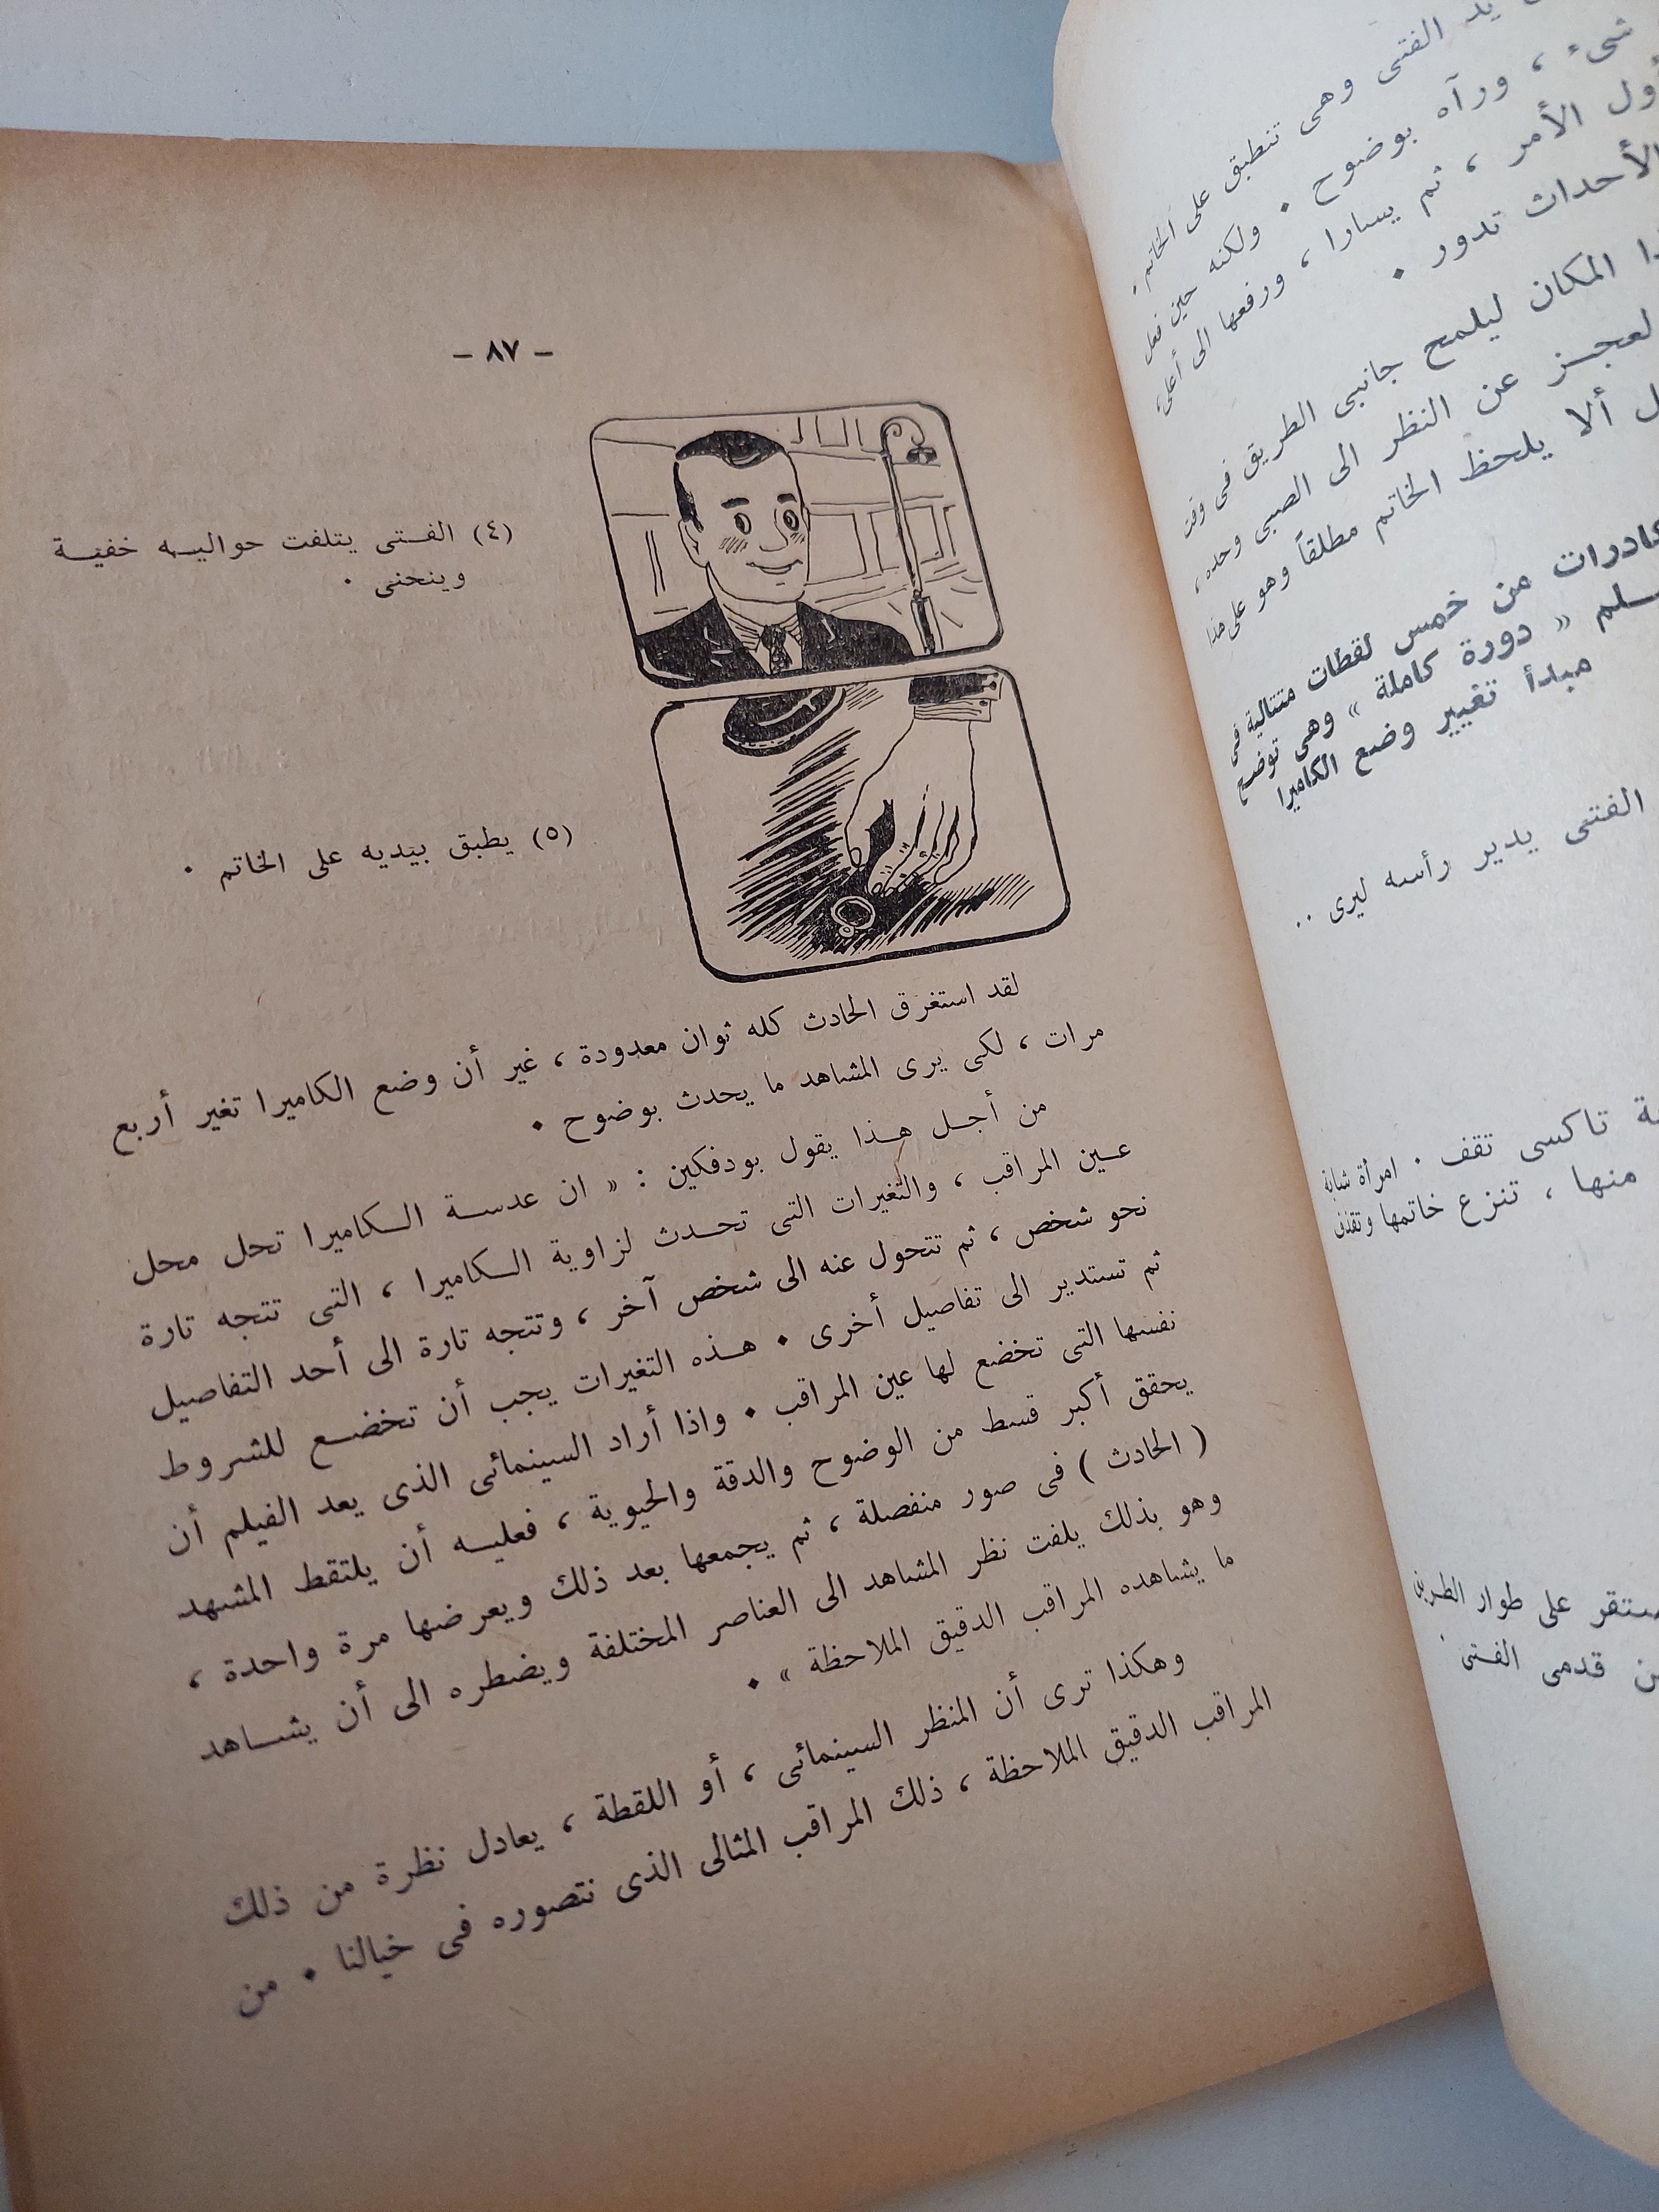 يد الفتى وهى تنطبق على الخاتم
شىء ، ورآه بوضوح . ولكنه حين فعل
أول الأمر ، ثم يسارا ، ورفعها الى أعلى
الأحداث تدور .
المكان ليلمح جانبى الطريق فى وقت
لعجـز عن النظر الى الصبى وحده ،
ألا يلحظ الخاتم مطلقاً وهو على هذا
كادرات من خمس لقطات متتالية فى
« دورة كاملة » وهى توضح
مبدأ تغيير وضع الكاميرا
الفتى يدير رأسه ليرى ..
تاكسى تقف . امرأة شابة
منها ، تنزع خاتمها وتقذف
على طوار الطريق
قدمى الفتى .
– ٨٧ –
(٤) الفـتى يتلفت حواليـه خفيـة
وينحنى .
(٥) يطبق بيديه على الخاتم .
لقد استغرق الحادث كله ثوان معدودة ، غير أن وضع الكاميرا تغير أربع
مرات ، لكى يرى المشاهد ما يحدث بوضوح .
من أجـل هـذا يقول بودفكين : « ان عدسـة الـكاميرا تحل محل
عـين المراقب ، والتغيرات التى تحـدث لزاوية الـكاميرا ، التى تتجه تارة
نحو شخص ، ثم تتحول عنه الى شخص آخر ، وتتجه تارة الى أحد التفاصيل
ثم تستدير الى تفاصيل أخرى . هـذه التغيرات يجب أن تخضـع للشروط
نفسها التى تخضع لها عين المراقب . واذا أراد السينمائى الذى يعد الفيلم أن
يحقق أكبر قسط من الوضوح والدقة والحيوية ، فعليـه أن يلتقط المشهد
( الحادث ) فى صور منفصلة ، ثم يجمعها بعد ذلك ويعرضها مرة واحدة ،
وهو بذلك يلفت نظر المشاهد الى العناصر المختلفة ويضطره الى أن يشـاهد
ما يشاهده المراقب الدقيق الملاحظة » .
وهكذا ترى أن المنظر السينمائى ، أو اللقطة ، يعادل نظرة من ذلك
المراقب الدقيق الملاحظة ، ذلك المراقب المثالى الذى نتصوره فى خيالنا . من